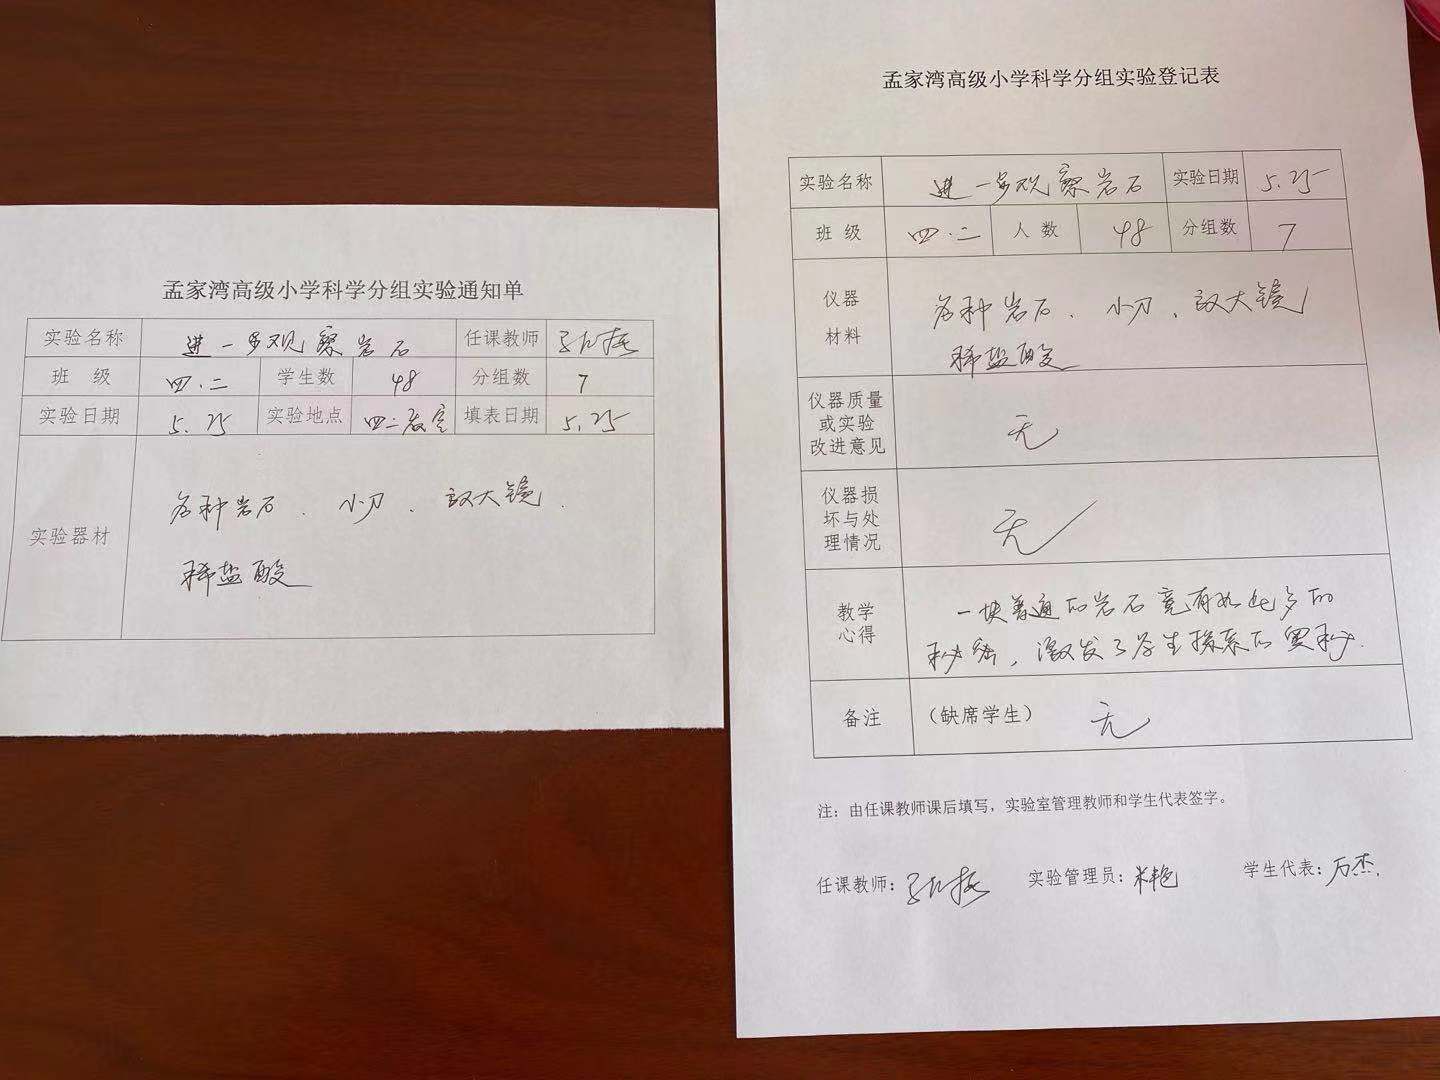 孟家湾高级小学科学分组实验通知单
实验名称 进一步观察岩石 任课教师
班 级 四.二 学生数 48 分组数 7
实验日期 5.25 实验地点 四二教室 填表日期 5.25
实验器材
各种岩石、小刀、放大镜.
稀盐酸
孟家湾高级小学科学分组实验登记表
实验名称 进一步观察岩石 实验日期 5.25
班 级 四.二 人 数 48 分组数 7
仪器
材料
各种岩石、小刀、放大镜、
稀盐酸
仪器质量
或实验
改进意见
无
仪器损
坏与处
理情况
无
教学
心得
一块普通的岩石竟有如此多的
秘密,激发了学生探索的奥秘.
备注 (缺席学生) 无
注：由任课教师课后填写，实验室管理教师和学生代表签字。
任课教师： 实验管理员：米艳 学生代表：万杰.